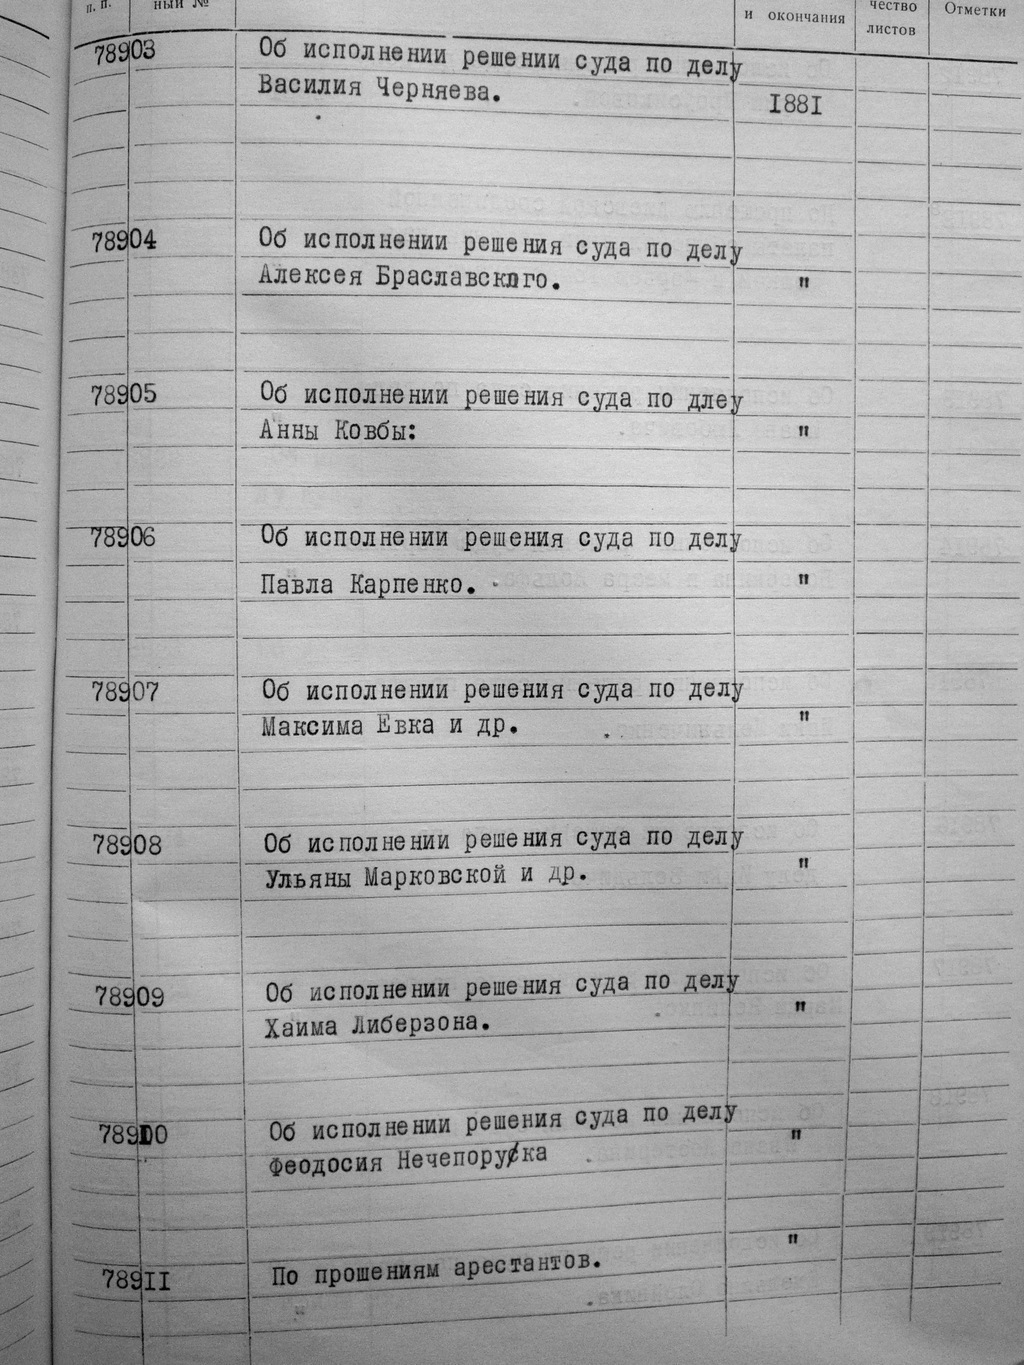 п. п. ный № и окончания чество листов Отметки
78903 Об исполнении решении суда по делу
Василия Черняева. 1881
78904 Об исполнении решения суда по делу
Алексея Браславского. "
78905 Об исполнении решения суда по длеу
Анны Ковбы: "
78906 Об исполнении решения суда по делу
Павла Карпенко. "
78907 Об исполнении решения суда по делу
Максима Евка и др. "
78908 Об исполнении решения суда по делу
Ульяны Марковской и др. "
78909 Об исполнении решения суда по делу
Хаима Либерзона. "
78910 Об исполнении решения суда по делу
Феодосия Нечепорука "
78911 По прошениям арестантов. "